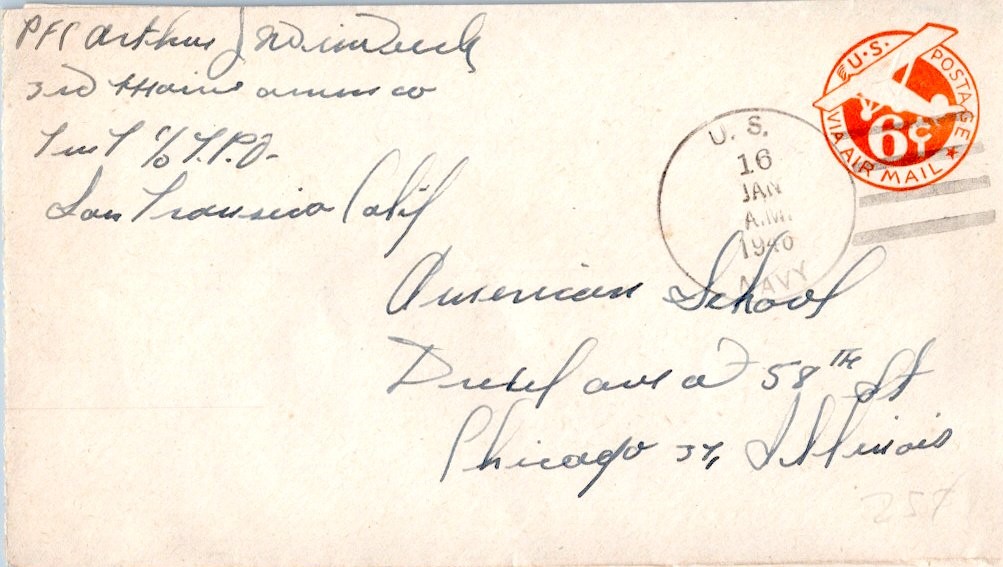 PFC Arthur J
3rd Marine ammo co
F.P.O.
San Fransico Calif
U.S. POSTAGE
VIA AIR MAIL
6¢
U. S.
16
JAN
A.M.
1946
NAVY
American School
Drexel ave at 58TH St
Chicago 37, Illinois
257